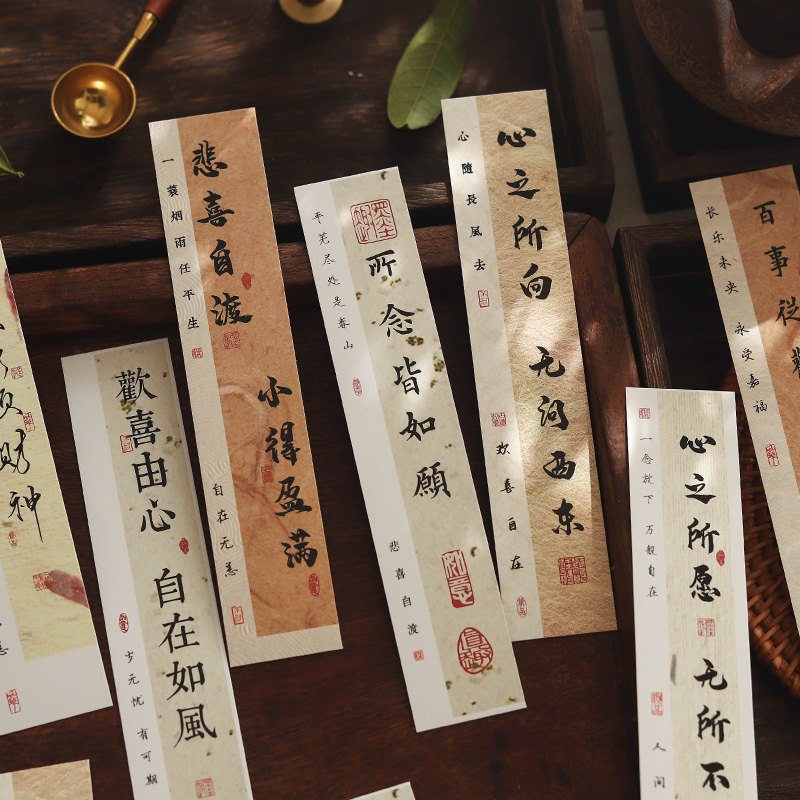 财神
歡喜由心
自在如風
岁无忧 有可期
一蓑烟雨任平生
悲喜自渡
小得盈满
自在无恙
平芜尽处是春山
所念皆如願
悲喜自渡
心随長風去
心之所向
无河西东
欢喜自在
一念放下 万般自在
心之所愿
无所不
人间
长乐未央 永受嘉福
百事從